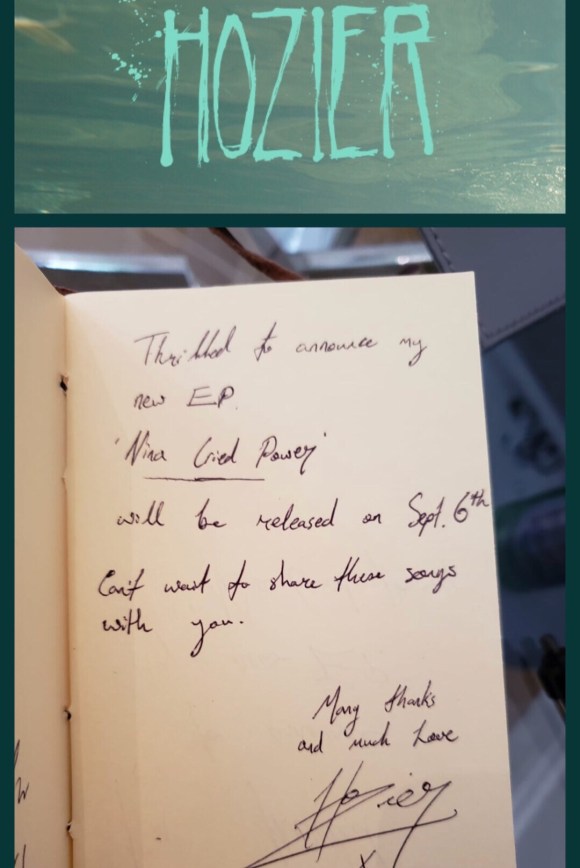 HOZIER
Thrilled to announce my
new EP.
'Nina Cried Power'
will be released on Sept. 6th
Can't wait to share these songs
with you.
Many thanks
and much Love
Hozier
X